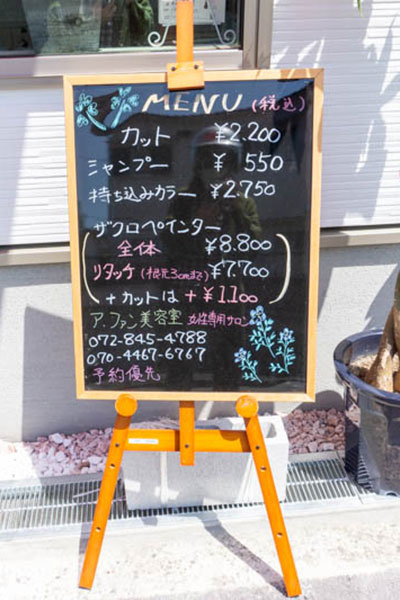 MENU (税込)
カット ¥2.200
シャンプー ¥ 550
持ち込みカラー ¥2.750
ザクロペインター
全体 ¥8.800
リタッチ(根元3cmまで) ¥7.700
+カットは +¥1.100
ア.ファン美容室 女性専用サロン
072-845-4788
070-4467-6767
予約優先